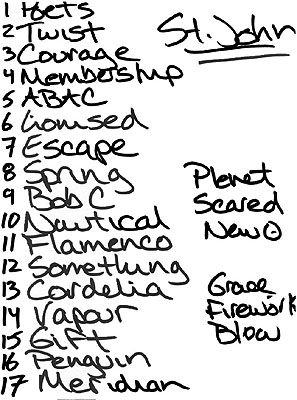 1 Poets
2 Twist
3 Courage
4 Membership
5 ABAC
6 Lionised
7 Escape
8 Spring
9 Bob C
10 Nautical
11 Flamenco
12 Something
13 Cordelia
14 Vapour
15 Gift
16 Penguin
17 Meridian
St. John
Planet
Scared
New O
Grace
Firework
Blow